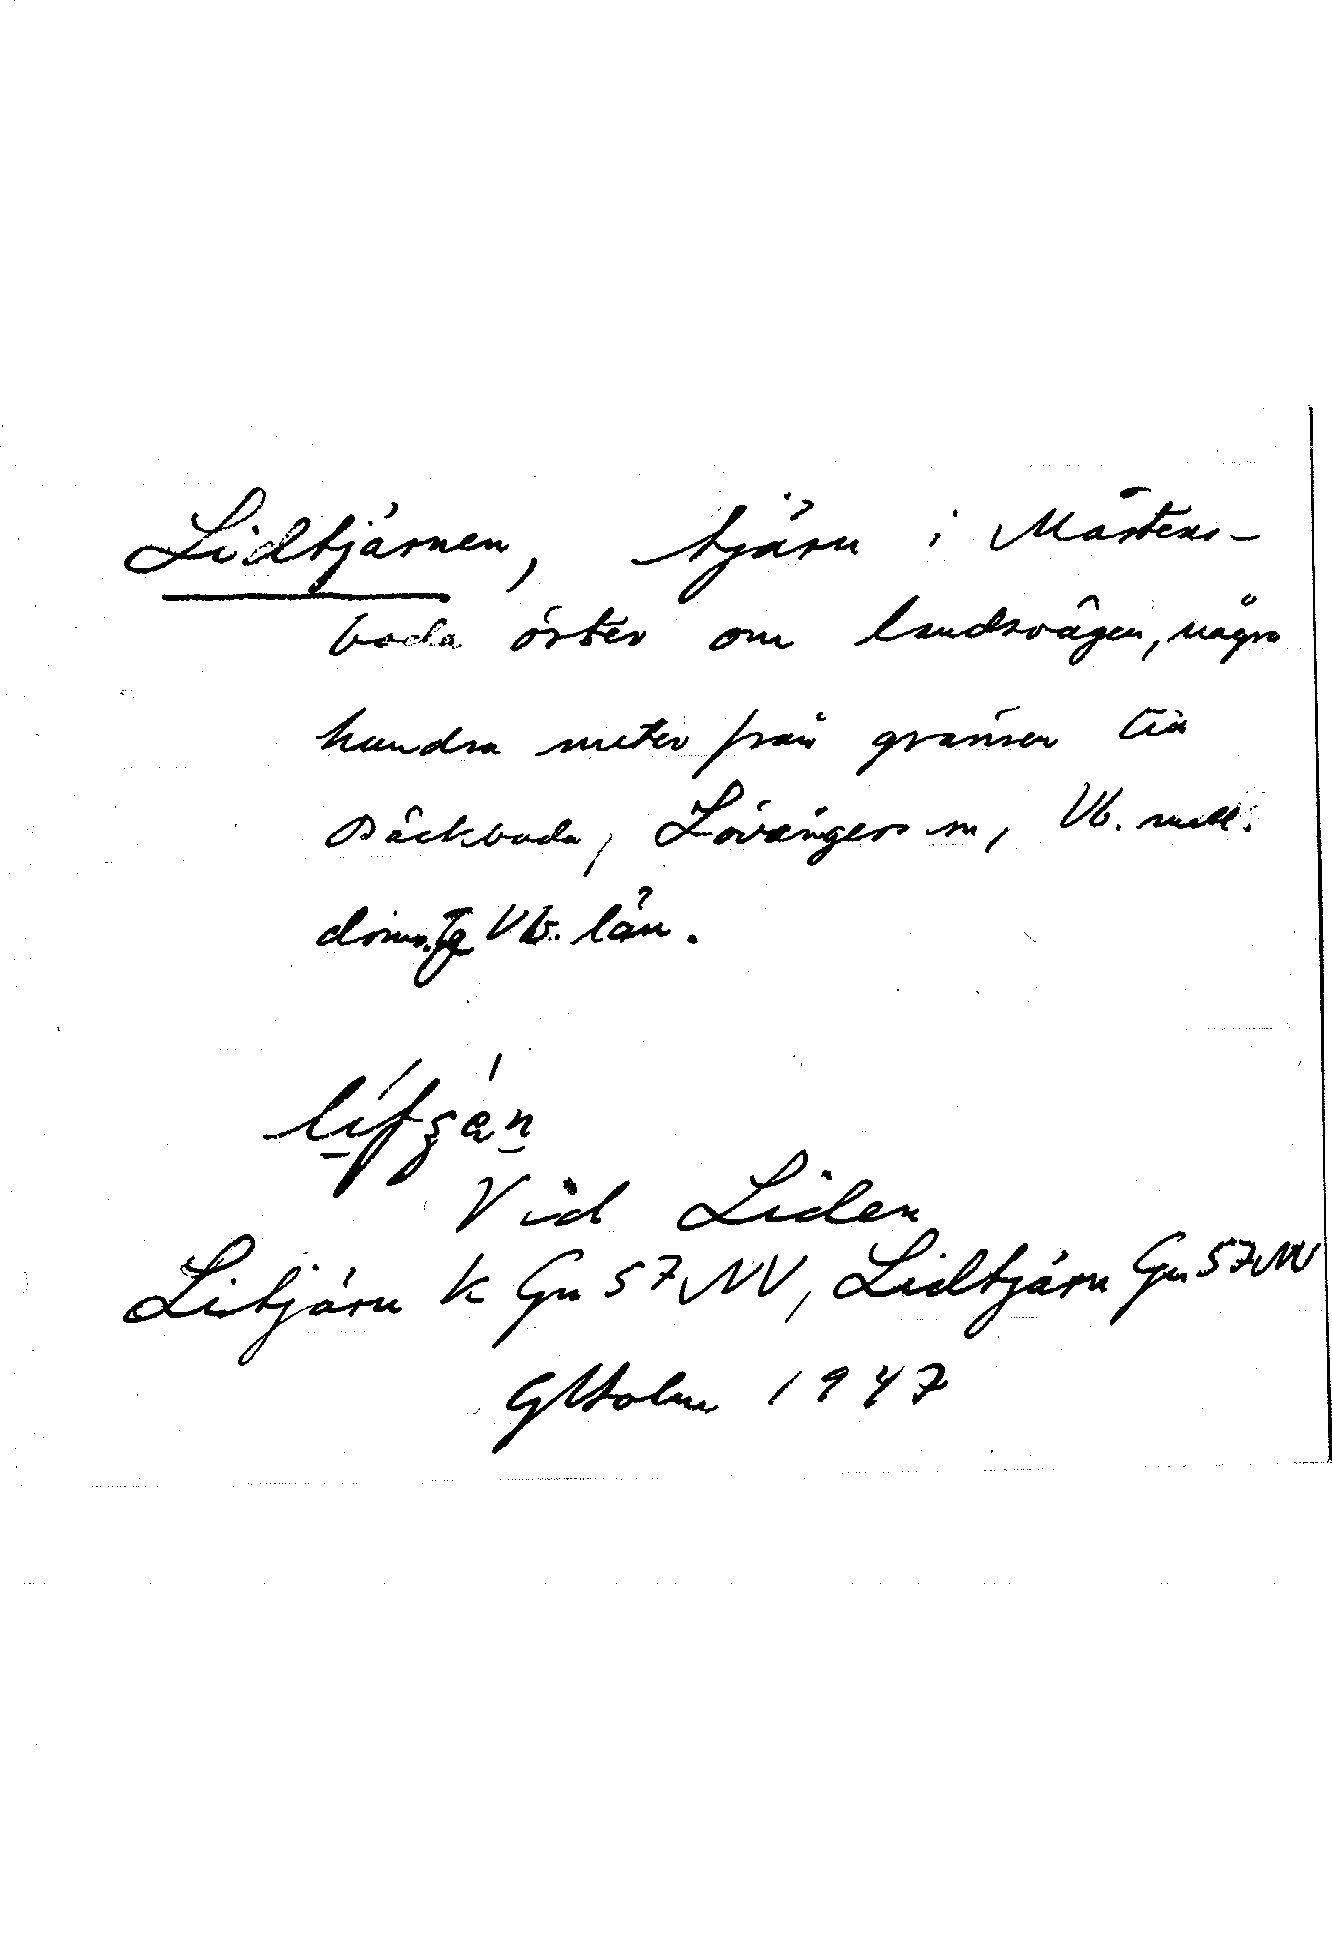 Lidtjärnen, tjärn i Mårtens-
boda öster om landsvägen, några
hundra meter från gränsen till
Bäckboda, Lövångers sn, Vb. mell.
doms. Vb. län.
Vid Liden
Litjärn k Gn 57 NV, Lidtjärn Gn 57 NV
GHolm 1947